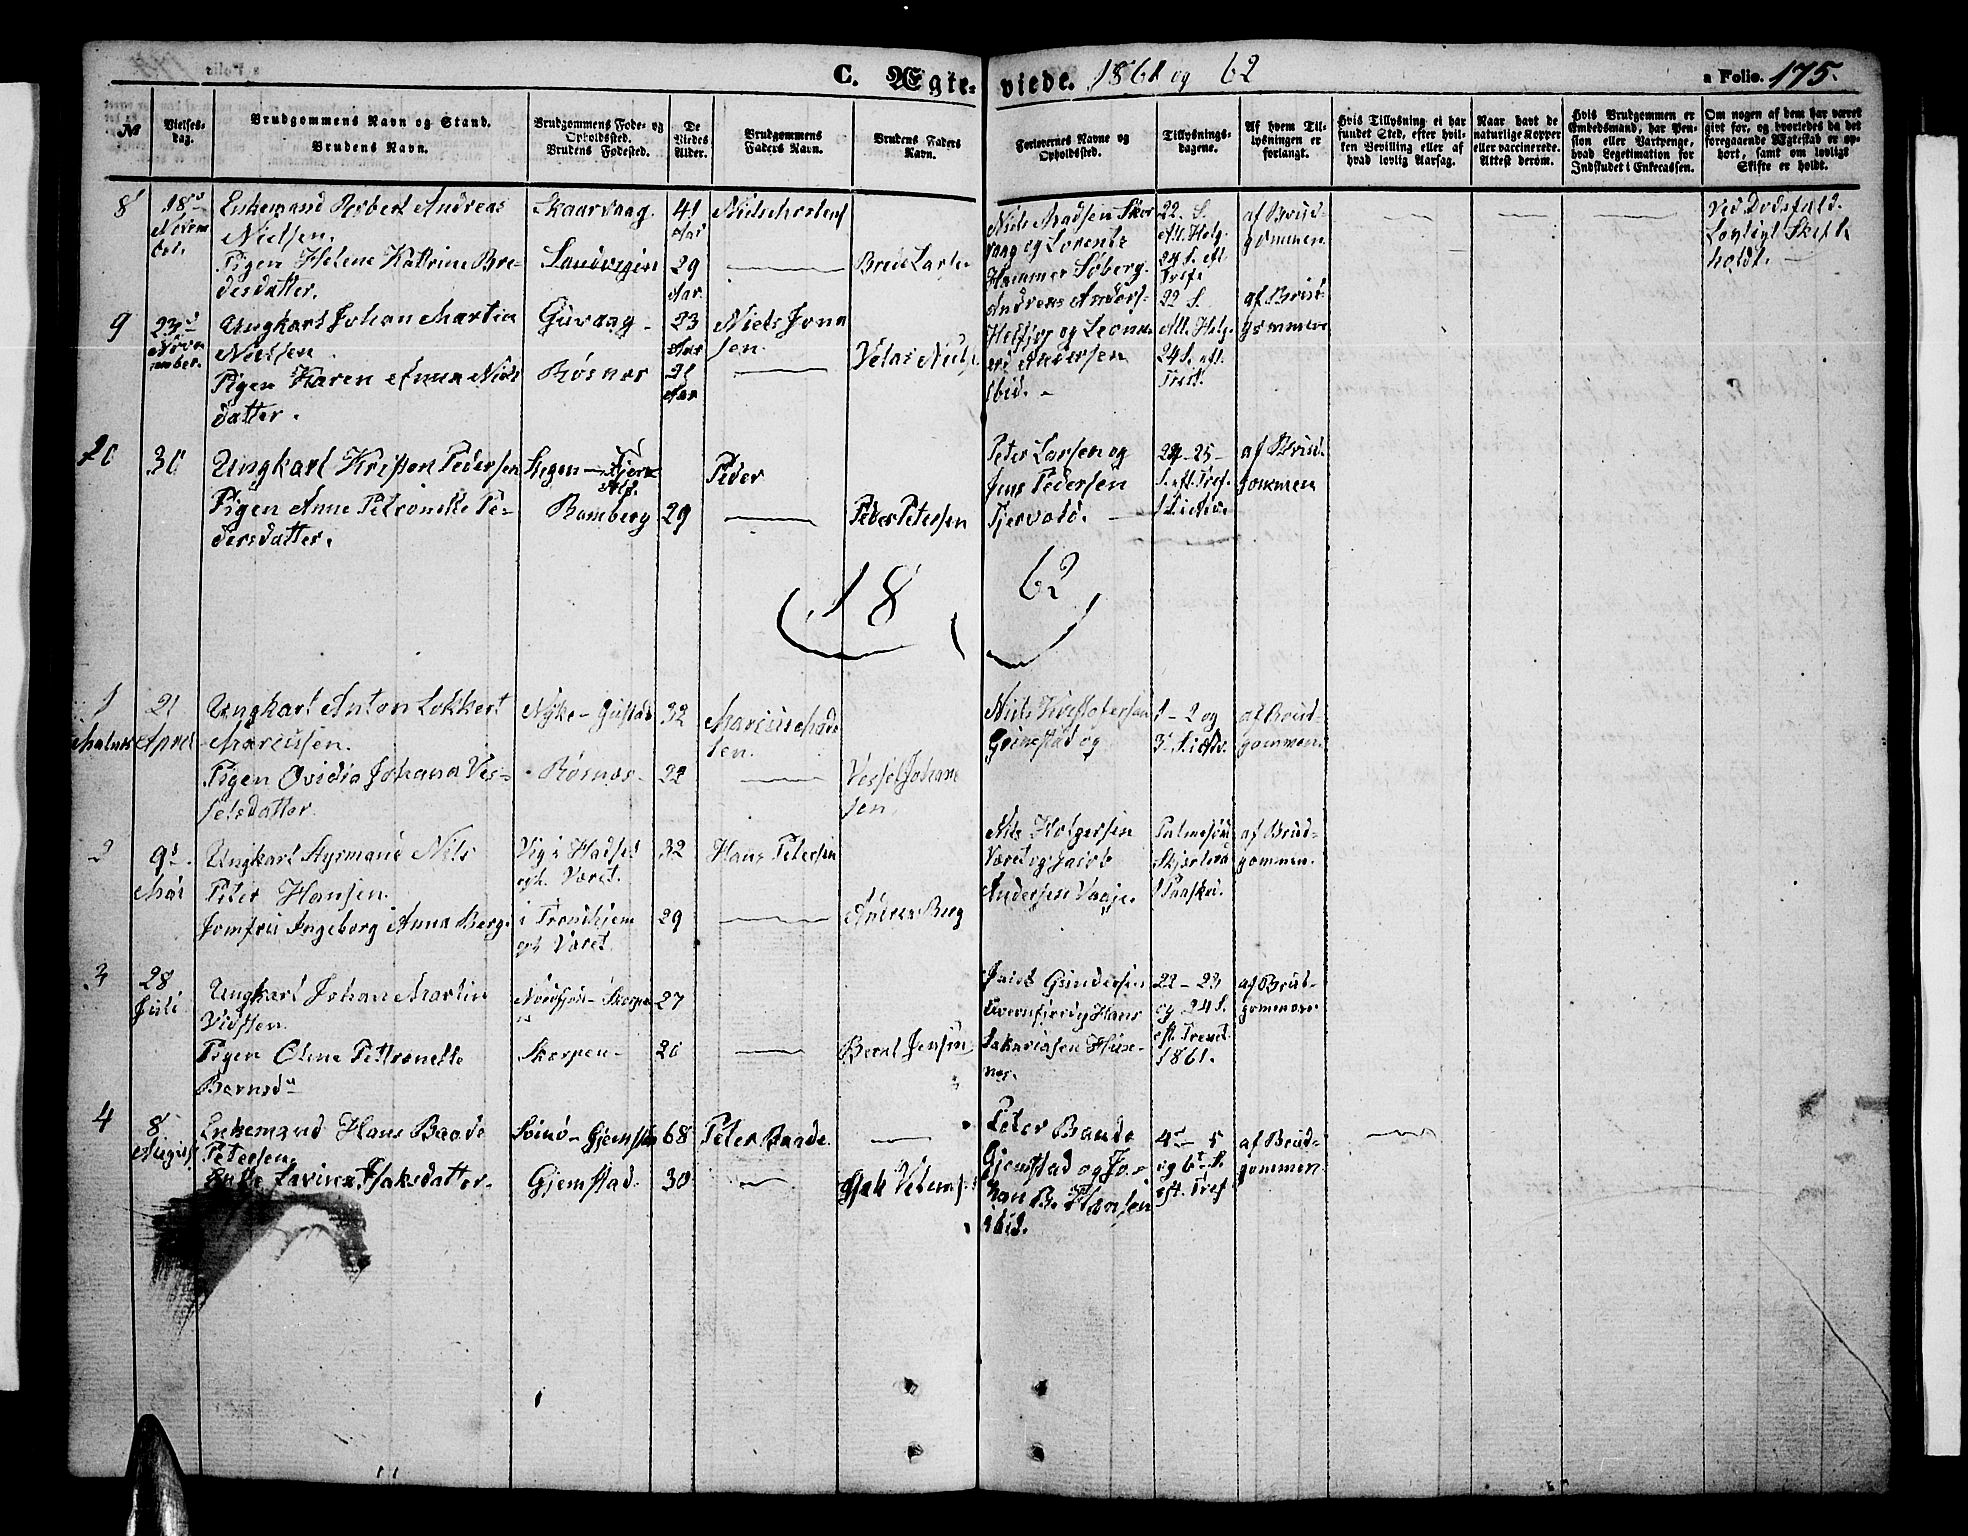 C. Ægte-
viede. 1861 og 62
a Folio. 175.
№
Vielses-
dag.
Brudgommens Navn og Stand.
Brudens Navn.
Brudgommens Føde- og
Opholdssted.
Brudens Fødested.
De
Viedes
Alder.
Brudgommens
Faders Navn.
Brudens Faders
Navn.
Forlovernes Navne og
Opholdssted.
Tillysnings-
dagene.
Af hvem Til-
lysningen er
forlangt.
Hvis Tillysning ei har
fundet Sted, efter hvil-
ken Bevilling eller af
hvad lovlig Aarsag.
Naar havt de
naturlige Kopper
eller vaccinerede.
Attest derom.
Hvis Brudgommen er
Embedsmand, har Pen-
sion eller Vartpenge,
hvad Legetimation for
Indskudet i Enkecassen.
Om nogen af dem har været
gift før, og hvorledes da det
foregaaende Ægteskab er op-
hørt, samt om lovligt
Skifte er holdt.
8
18de
Novem
ber.
Enkemand Robert Andreas
Nielsen.
Pigen Helene Kattrine Bre-
desdatter.
Skaarvaag.
Sandvigen
41
Aar
29
Aar.
Brede Lars
Niels Madsen Skor
vaag og Lorents
Hammer Søberg.
22. S.
All. Helg.
24 S. eft
Tref.
af Brud-
gommen.
Ved Dødsfald.
Lovligt Skift
holdt.
9
23de
Novem
ember.
Ungkarl Johan Martin
Nielsen
Pigen Karen Anna Niels
datter.
Guvaag
Røsnes
23
Aar
21
Aar
Niels Jona
sen.
Andreas Anders-
og Leon
ard Andersen
ibid.
22 S.
All. Helg.
24 S. eft.
Tref.
af Brud-
gommen
10
30
Ungkarl Kristen Pedersen
Pigen Anne Petronelle Pe-
dersdatter.
Skogen
Ramberg
29
Peder
Peder Petersen
Peter Larsen og
Jens Pedersen
Fjervold.
24-25-
S. eft. Tref.
1 S. i Adv.
af Brud-
gommen
18 62
1
Malnes
21
April
Ungkarl Anton Lekkert
Marcussen.
Pigen Ovidia Johana Ves-
selsdatter.
Nyke - Gustad
Røsnes
32
22
Marcus Mads
sen.
Vessel Johan
sen
Niels Kristofersen
Grimstad og
1 - 2 og
3 S. i Adv.
af Brud-
gommen.
2
9de
Mai
Ungkarl Styrmand Nils
Peter Hansen.
Jomfru Ingeborg Anna Berg.
Vig i Hadsel
oph. Været.
i Trondhjem
oph. Været.
32
29
Hans Petersen
Andreas Berg
Nils Holgersen
Været og Jacob
Andersen Vaage.
Palmesøn
Skjærtorsd
1 Paaskd.
af Brud-
gommen.
3
28
Juli
Ungkarl Johan Martin
Pigen Oline Pettronelle
Bernsdr
Nordfjord - Skorpen
Skorpen -
27
20
Bernt Jensen
Jacob Gundersen
Hans
Sakariasen Huse-
nes.
22 - 23
og 24 S.
eft. Treet.
1861.
af Brud-
gommen
4
8
August
Enkemand Hans Baade
Petersen.
Enke Lavina Isaksdatter.
Sømø - Gjemstad
Gjemstad.
68
30
Peter Baade.
Isak Vilums
Peter Baade
Gjemstad og Jo-
han B. Hansen
ibid.
4de - 5
og 6te S.
eft. Tref.
af Brud-
gommen.